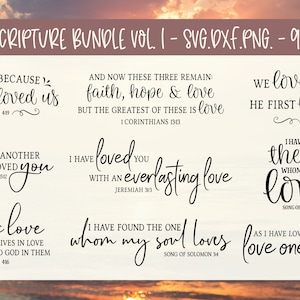 CRIPTURE BUNDLE VOL. 1 - SVG.DXF.PNG. - 9
BECAUSE
loved us
4:19
AND NOW THESE THREE REMAIN:
faith, hope & love
BUT THE GREATEST OF THESE IS love
1 CORINTHIANS 13:13
WE lov
HE FIRST
ANOTHER
OVED you
I HAVE loved YOU
WITH AN everlasting love
JEREMIAH 31:3
I HAV
the
WHOM
lo
SONG OF SOLO
love
IVES IN LOVE
D GOD IN THEM
4:16
I HAVE FOUND THE ONE
whom my soul loves
SONG OF SOLOMON 3:4
AS I HAVE LOV
love one